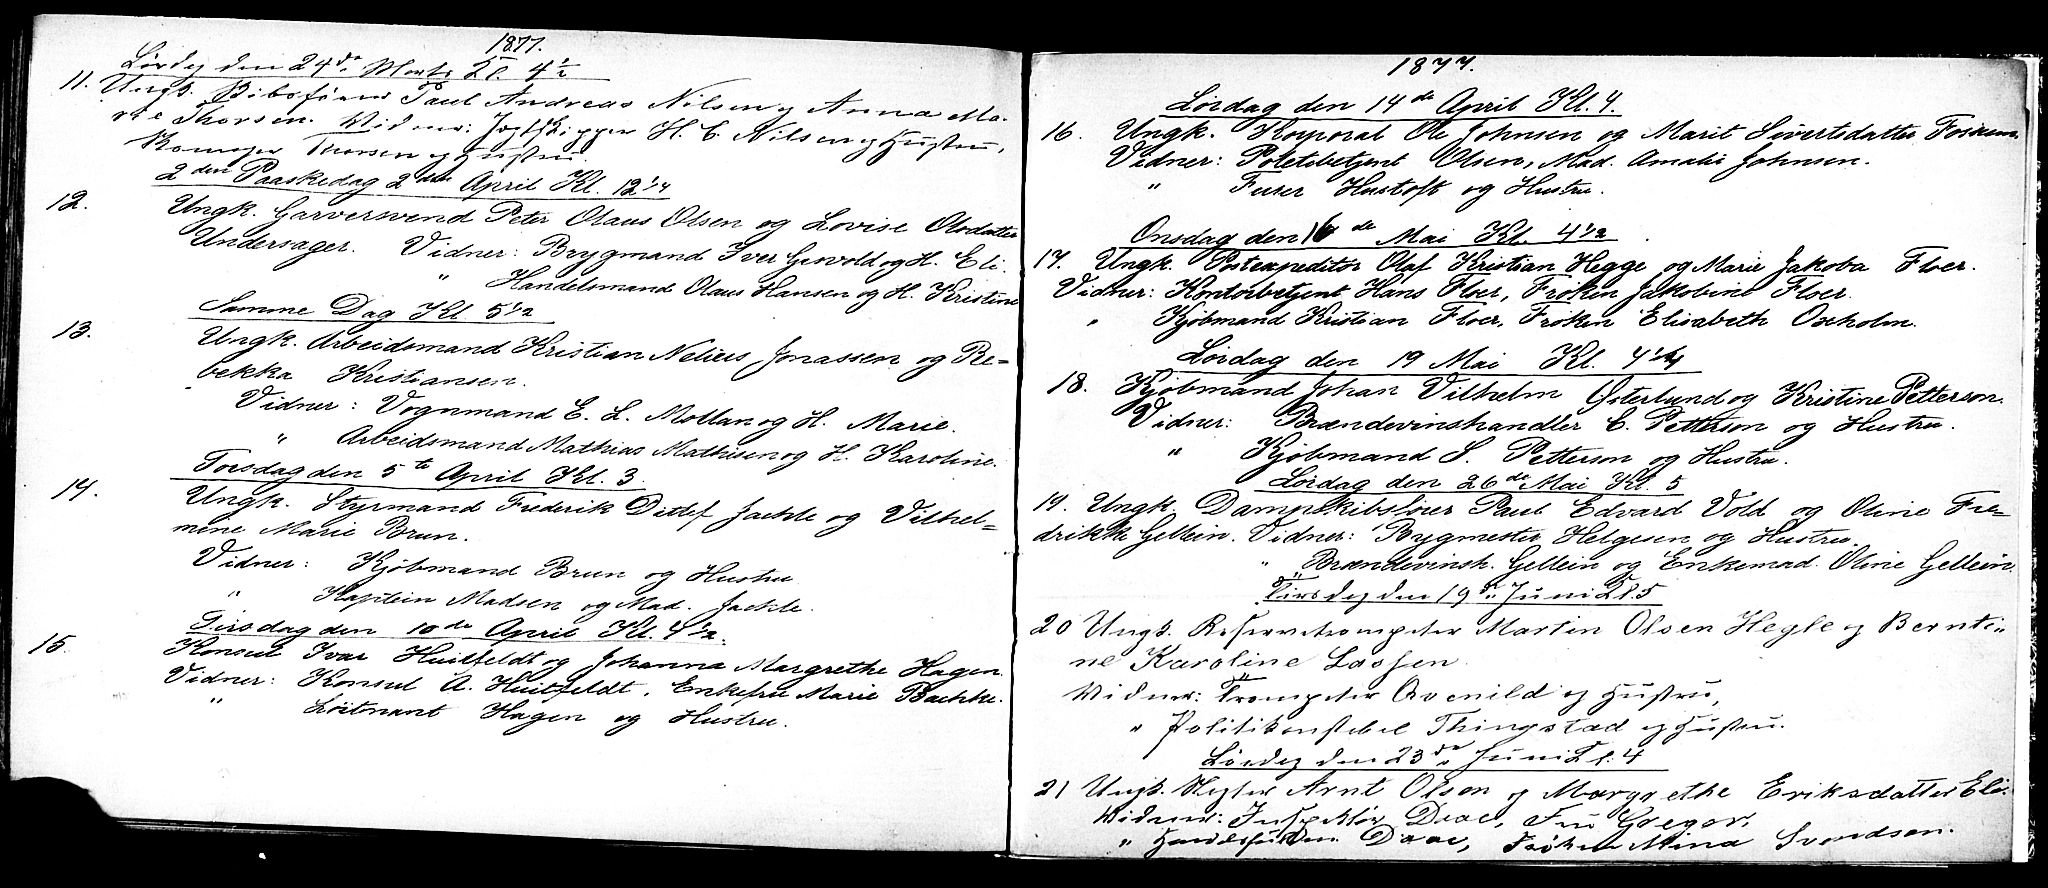 1877.
Lørdag den 24de Marts Kl. 4½
11. Ungk. Skibsfører Paul Andreas Nilsen og Anna Ma-
rie Thorsen. Vidner: Jagtskipper H. C. Nilsen og Hustru,
Thorsen og Hustru.
2den Paaskedag 2den April Kl. 12¼
12. Ungk. Garversvend Peter Olaus Olsen og Lovise Olsdatter
Undersager. Vidner: Brygmand Iver Grovold og H. Eli.
" Handelsmand Olaus Hansen og H. Kristine
Samme Dag Kl. 5½
13. Ungk. Arbeidsmand Kristian Nelius Jonassen og Re-
bekka Kristiansen.
Vidner: Vognmand E. L. Mollan og H. Marie.
" Arbeidsmand Mathias Mathisen og H. Karoline.
Torsdag den 5te April Kl. 3
14. Ungk. Styrmand Frederik Detlef Jackle og Vilhel-
mine Marie Brun.
Vidner: Kjøbmand Brun og Hustru
" Kaptein Madsen og Mad. Jackle.
Tirsdag den 10de April Kl. 4½.
15. Konsul Ivar Huitfeldt og Johanna Margrethe Hagen.
Vidner: Konsul A. Huitfeldt, Enkefru Marie Bachke.
" Løitnant Hagen og Hustru.
1877.
Lørdag den 14de April Kl. 4.
16. Ungk. Korporal Ole Johnsen og Marit Sivertsdatter
Vidner: Politibetjent Olsen, Mad. Amalie Johnsen.
" Furer Hustoft og Hustru.
Onsdag den 16de Mai Kl. 4½
17. Ungk. Postexpeditør Olaf Kristian Hegge og Marie Jakoba Floer.
Vidner: Kontorbetjent Hans Floer, Frøken Jakobine Floer.
" Kjøbmand Kristian Floer, Frøken Elisabeth Oxholm.
Lørdag den 19 Mai Kl. 4¼
18. Kjøbmand Johan Vilhelm Østerlund og Kristine Petterson.
Vidner: Brændevinshandler C. Petterson og Hustru.
" Kjøbmand S. Petterson og Hustru.
Lørdag den 26de Mai Kl. 5
19. Ungk. Dampskibsfører Paul Edvard Vold og Oline Fre-
drikke Gellein. Vidner: Bygmester Helgesen og Hustru.
" Brændevinsh. Gellein og Enkemad. Oline Gellein.
Tirsdag den 19de Juni Kl. 5
20 Ungk. Reservetrompeter Martin Olsen Hegle og Bernti-
ne Karoline Lassen.
Vidner: Trompeter Avenild og Hustru,
" Politikonstabel Thingstad og Hustru.
Lørdag den 23de Juni Kl. 4
21 Ungk. Arnt Olsen og Margrethe Eriksdatter Eli.
Vidner: Inspektør Daae, Fru Greger,
" Daae, Frøken Mina Svendsen.